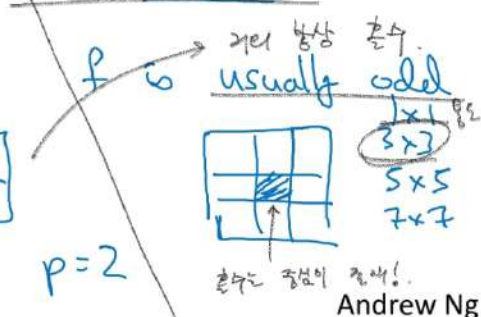 거의 항상 홀수.
f is usually odd
1×1
3×3
5×5
7×7
p=2
홀수는 중심이 존재!
Andrew Ng